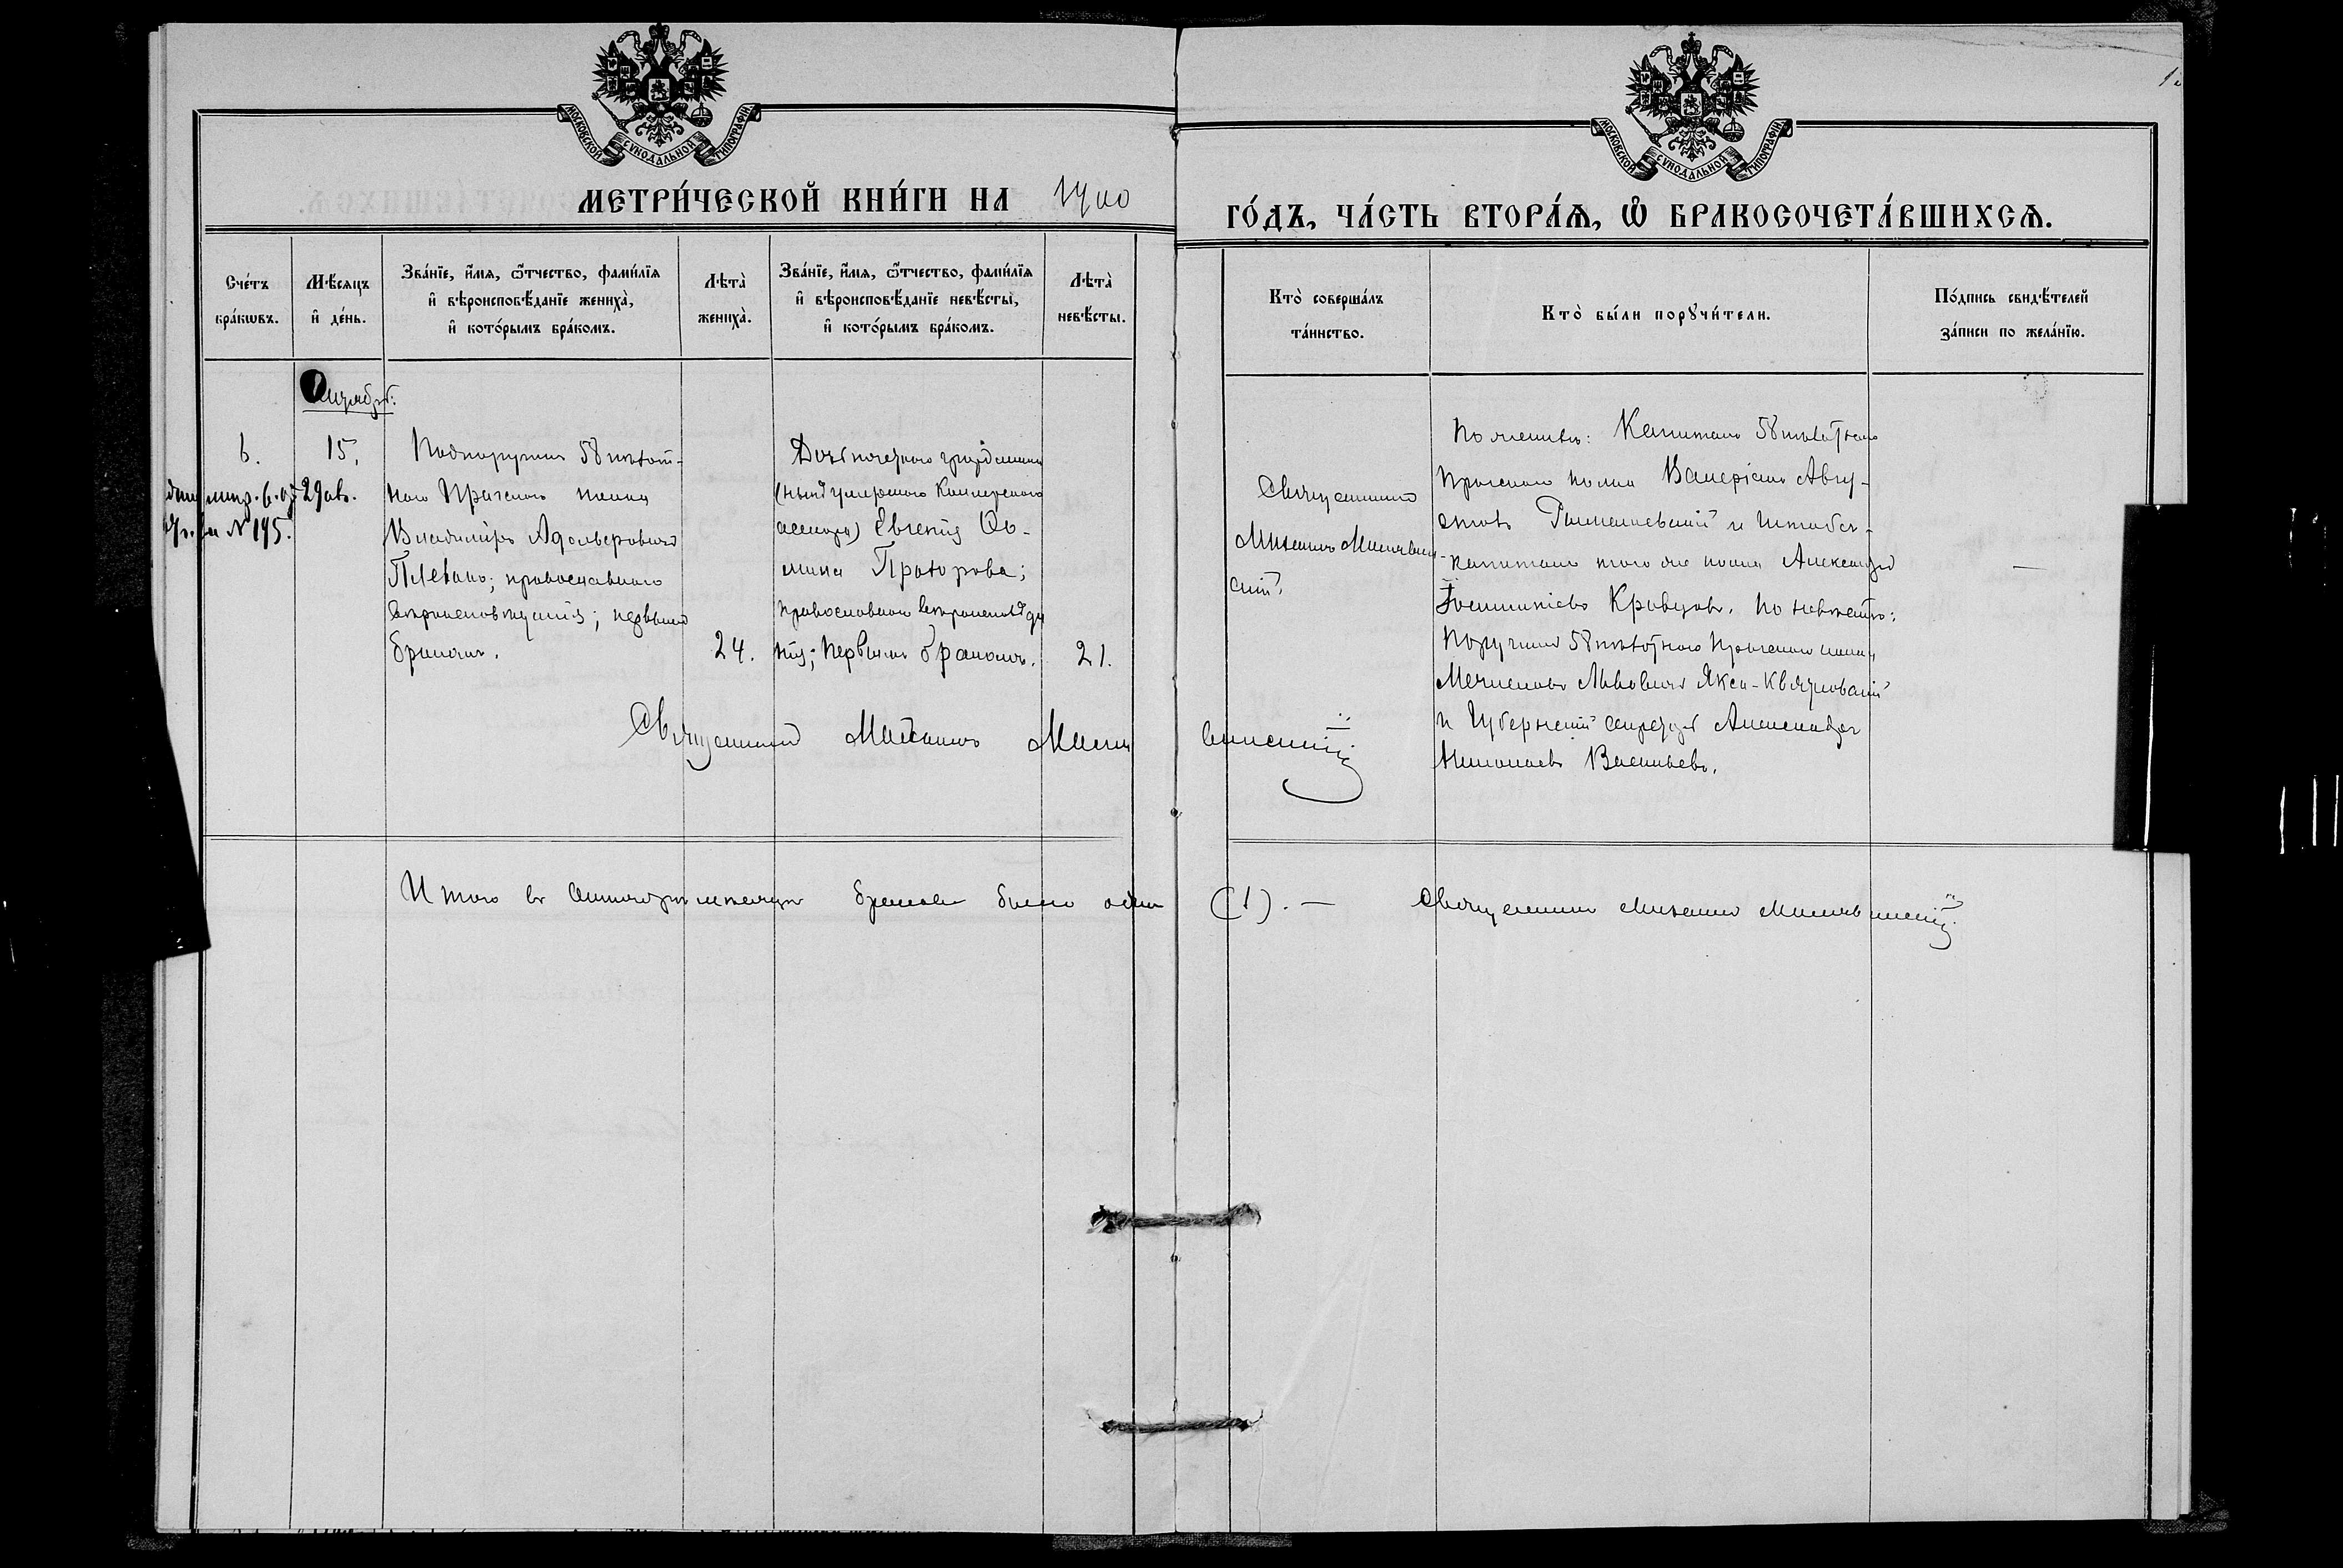 МОСКОВСКОЙ СѴНОДАЛЬНОЙ ТИПОГРАФІИ.
МОСКОВСКОЙ СѴНОДАЛЬНОЙ ТИПОГРАФІИ.
МЕТРИ́ЧЕСКОЙ КНИ́ГИ НА 1900
ГО́ДЪ, ЧА́СТЬ ВТОРА́Ѧ, Ѽ БРАКОСОЧЕТА́ВШИХСѦ.
Сче́тъ
бра́кѡвъ.
Мѣ́сяцъ
и҆ де́нь.
Зва́нїе, и҆́мѧ, ѻ҆́тчество, фами́лїѧ
и҆ вѣроисповѣ́данїе жениха̀,
и҆ кото́рымъ бра́комъ.
Лѣ́та̀
жениха̀.
Зва́нїе, и҆́мѧ, ѻ҆́тчество, фами́лїѧ
и҆ вѣроисповѣ́данїе невѣ́сты,
и҆ кото́рымъ бра́комъ.
Лѣ́та̀
невѣ́сты.
Кто̀ соверша́лъ
та́инство.
Кто̀ бы́ли порꙋчи́тели.
По́дпись свидѣ́телей
за́писи по жела́нїю.
6.
15.
29 окв.
№ 195.
Подпоручикъ 58 пѣхот-
наго Пражскаго полка
Владиміръ Адольфовичъ
Плевако; православнаго
вѣроисповѣданія; первымъ
бракомъ.
24.
Дочь почетнаго гражданина
(нынѣ умершаго Коллежскаго
ассесора) Евгенія Ѳо-
мина Прохорова;
православнаго вѣроисповѣда
нія; первымъ бракомъ.
21.
Священникъ
Михаилъ Милявин-
скій.
По женихѣ: Капитанъ 58 пѣхотнаго
Пражскаго полка Валеріанъ Авгу-
стовъ и Штабсъ-
капитанъ того же полка Александръ
Кравцовъ. По невѣстѣ:
Поручикъ 58 пѣхотнаго Пражскаго полка
Мечиславъ Якса-Квятковскій
и Губернскій секретарь Александръ
Николаевъ Васильевъ.
—
Священникъ Михаилъ Миля винскій
Итого въ мѣсяцѣ браковъ было одинъ (1). — Священникъ Михаилъ Милявинскій.